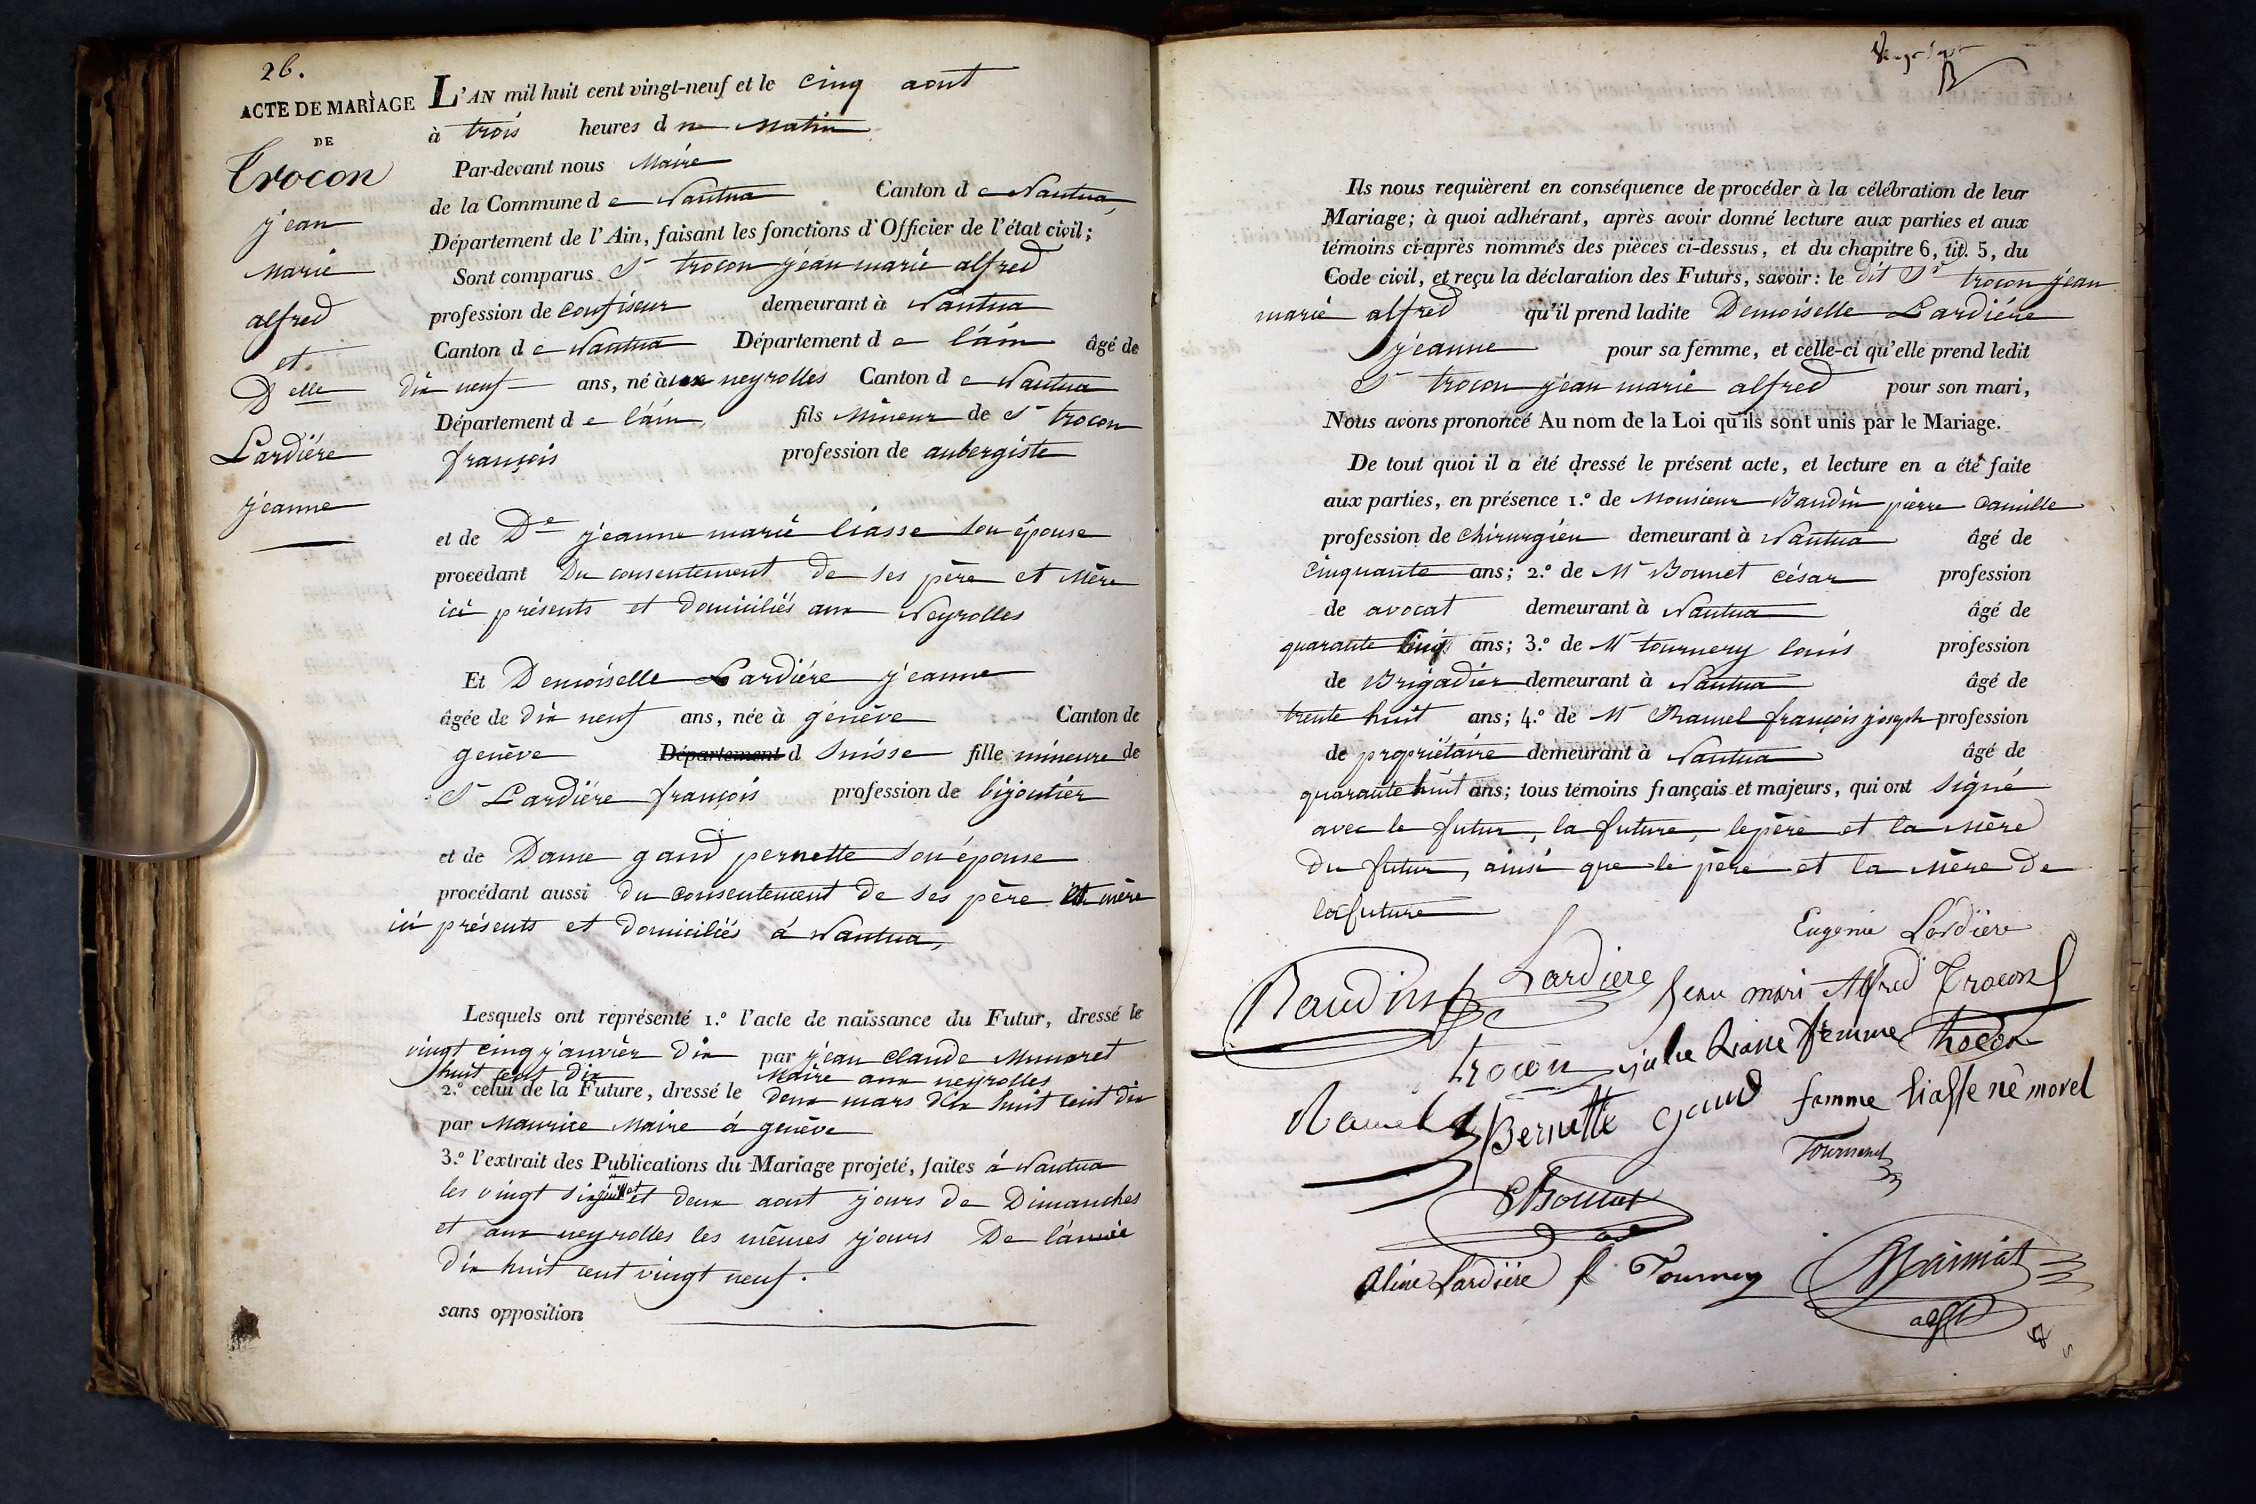 26.
ACTE DE MARIAGE
DE
Trocon
jean
marie
alfred
et
Delle
Lardiére
jeanne
L'AN mil huit cent vingt-neuf et le cinq aout
à trois heures du matin
Par-devant nous Maire
de la Commune de Nantua Canton de Nantua,
Département de l'Ain, faisant les fonctions d'Officier de l'état civil;
Sont comparus Sr trocon jean marie alfred
profession de confiseur demeurant à Nantua
Canton de Nantua Département de l'ain âgé de
dix neuf ans, né aux neyrolles Canton de Nantua
Département de l'ain, fils mineur de Sr trocon
françois profession de aubergiste
et de De jeanne marie liasse son épouse
procédant Du consentement de ses père et Mère
ici présents et domiciliés aux Neyrolles
Et Demoiselle Lardiére jeanne
âgée de dix neuf ans, née à genève Canton de
genève Département d Suisse fille mineure de
Sr Lardiére françois profession de bijoutier
et de Dame gaud pernette son épouse
procédant aussi du consentement de ses père et mère
ici présents et domiciliés à Nantua,
Lesquels ont représenté 1.º l'acte de naissance du Futur, dressé le
vingt cinq janvier dix huit cent dix par jean claude Munaret Maire aux neyrolles
2.º celui de la Future, dressé le deux mars dix huit cent dix
par Maurice Maire à genève
3.º l'extrait des Publications du Mariage projeté, faites à Nantua
les vingt six juillet et deux aout jours de Dimanches
et aux neyrolles les mêmes jours De l'année
Dix huit cent vingt neuf.
sans opposition
Ils nous requièrent en conséquence de procéder à la célébration de leur
Mariage; à quoi adhérant, après avoir donné lecture aux parties et aux
témoins ci-après nommés des pièces ci-dessus, et du chapitre 6, tit. 5, du
Code civil, et reçu la déclaration des Futurs, savoir: le dit Sr trocon jean
marie alfred qu'il prend ladite Demoiselle Lardiére
jeanne pour sa femme, et celle-ci qu'elle prend ledit
Sr trocon jean marie alfred pour son mari,
Nous avons prononcé Au nom de la Loi qu'ils sont unis par le Mariage.
De tout quoi il a été dressé le présent acte, et lecture en a été faite
aux parties, en présence 1.º de Monsieur Baudin pierre Camille
profession de Chirurgien demeurant à Nantua âgé de
Cinquante ans; 2.º de Mr Bonnet César profession
de avocat demeurant à Nantua âgé de
quarante cinq ans; 3.º de Mr tournery louis profession
de Brigadier demeurant à Nantua âgé de
trente huit ans; 4.º de Mr Ramel françois joseph profession
de propriétaire demeurant à Nantua âgé de
quarante huit ans; tous témoins français et majeurs, qui ont Signé
avec le futur, la future, le père et la Mère
Du futur, ainsi que le père et la Mère De
la future
Eugenie Lardière
Baudin Lardiere Jean mari Alfred Trocon
trocon julie liasse femme trocon
Ramel Bernette gaud femme liasse né morel
Bonnet
Aline Lardiére Tournery